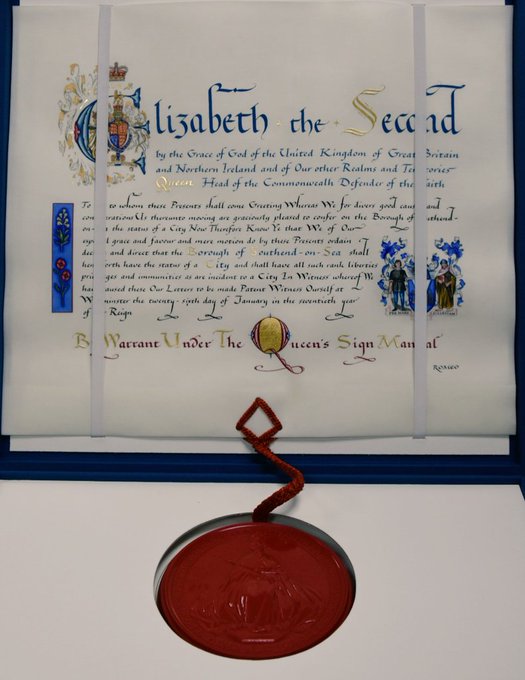 Elizabeth the Second
by the Grace of God of the United Kingdom of Great Britain
and Northern Ireland and of Our other Realms and Territories
Queen Head of the Commonwealth Defender of the Faith
To all to whom these Presents shall come Greeting Whereas We for divers good causes and
considerations Us thereunto moving are graciously pleased to confer on the Borough of Southend-
on-Sea the status of a City Now Therefore Know Ye that We of Our
especial grace and favour and mere motion do by these Presents ordain
declare and direct that the Borough of Southend-on-Sea shall
henceforth have the status of a City and shall have all such rank liberties
privileges and immunities as are incident to a City In Witness whereof We
have caused these Our Letters to be made Patent Witness Ourself at
Westminster the twenty-sixth day of January in the seventieth year
of Our Reign
By Warrant Under The Queen's Sign Manual
PER MARE
ROMEO